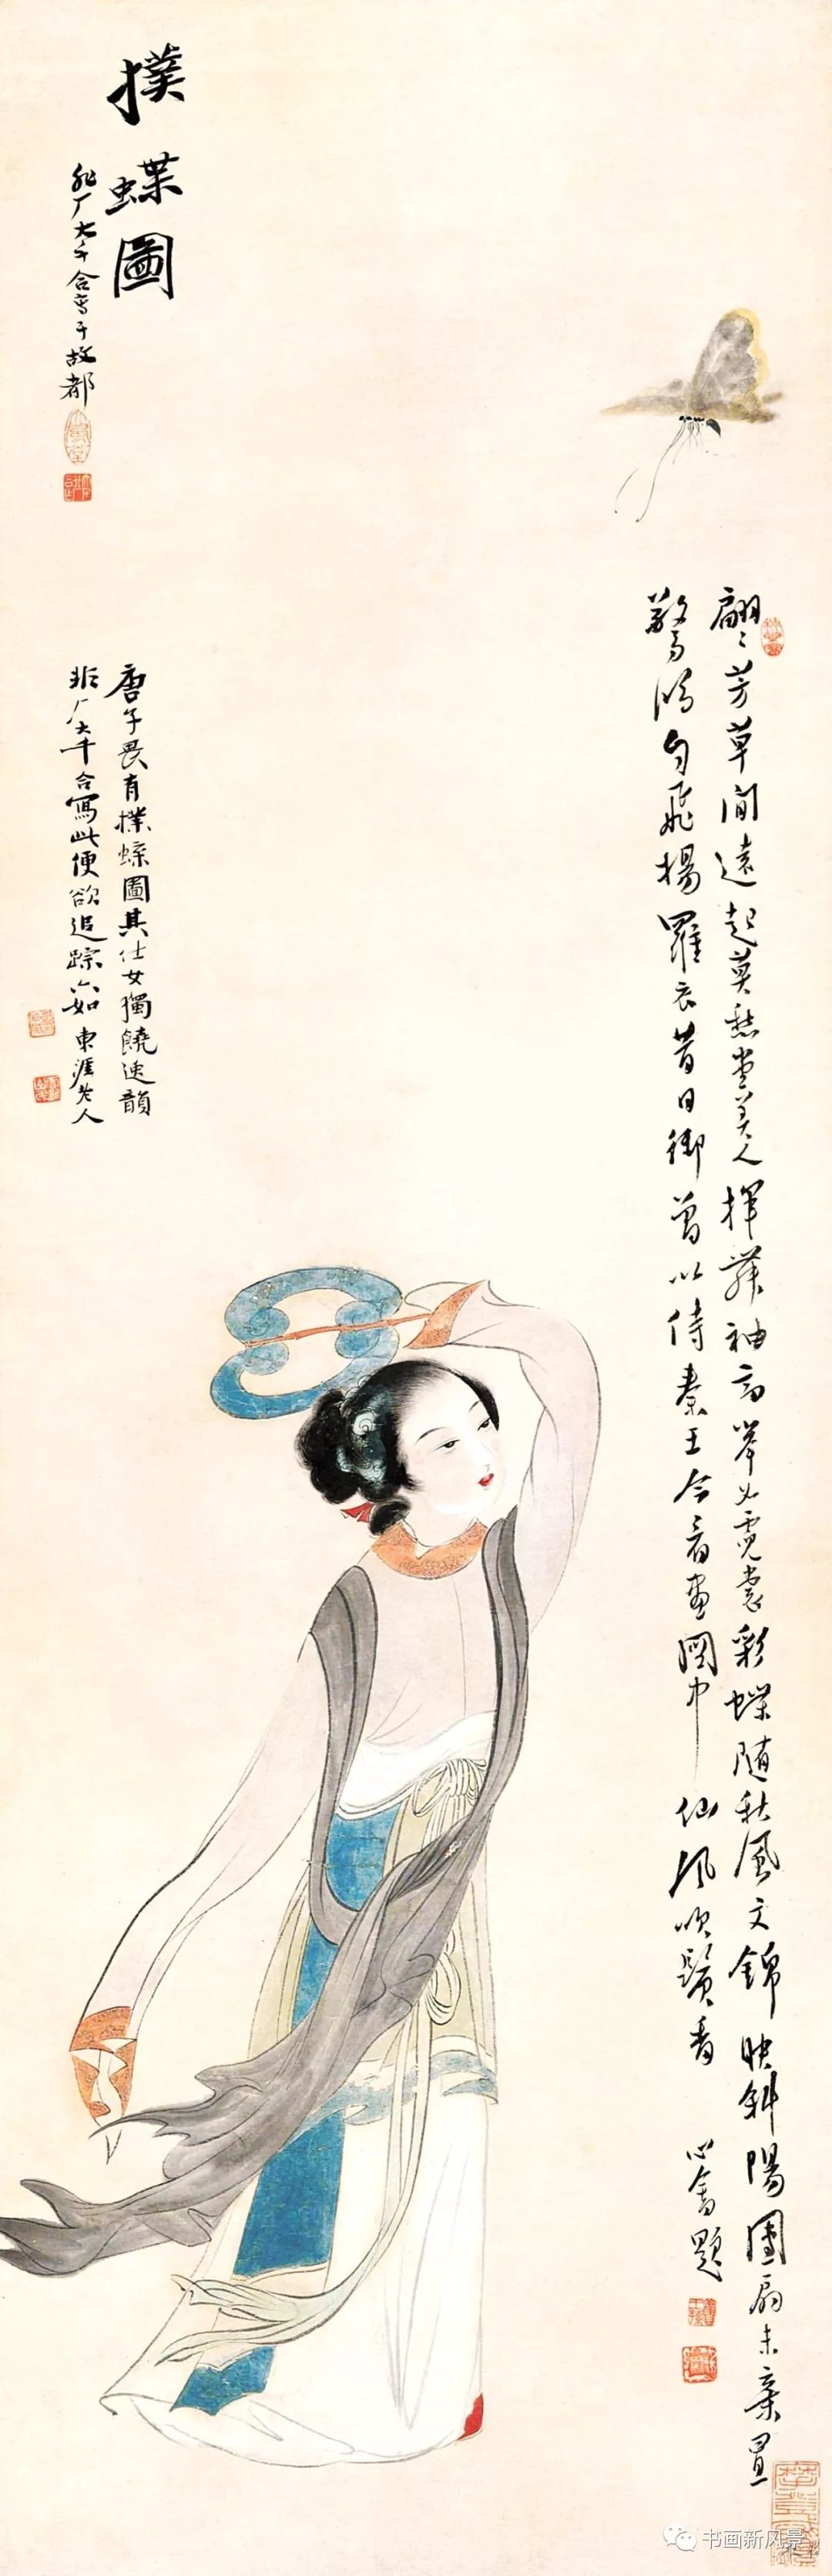 撲蜨圖
非厂大千合寫于故都
唐子畏有撲蜨圖其仕女獨饒逸韻
非厂大千合寫此便欲追踪六如 東涯老人
翩〻芳草間遠起莫愁堂美人揮舞袖高舉如霓裳彩蝶随秋風文錦映斜陽團扇未棄置
驚鴻自飛揚羅衣昔日御曾以侍秦王今看畫圖中仙風吹鬢香
心畬題
书画新风景